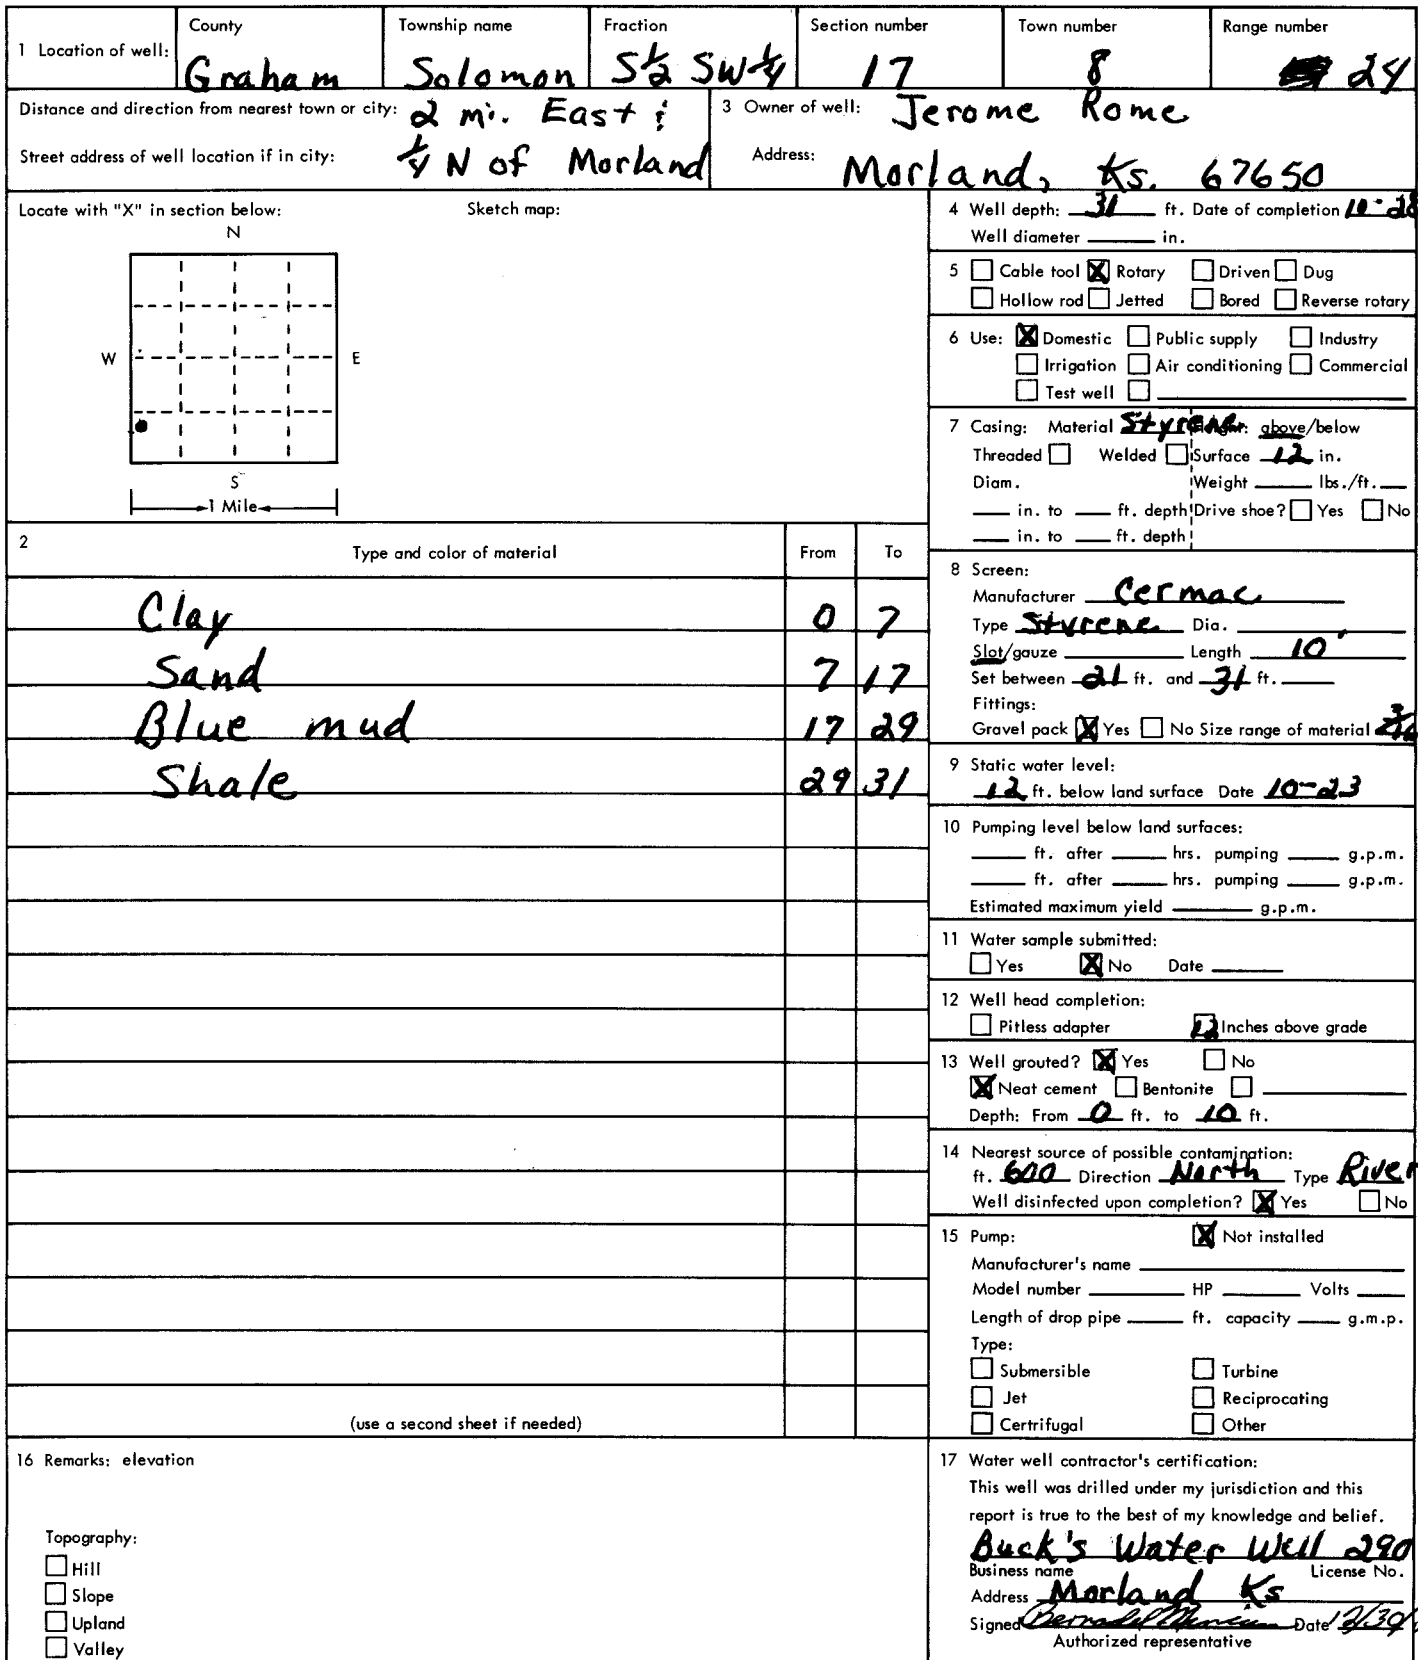 County Township name Fraction Section number Town number Range number
1 Location of well: Graham Solomon S½ SW¼ 17 8 24
Distance and direction from nearest town or city: 2 mi. East &
Street address of well location if in city: ¼ N of Morland
3 Owner of well: Jerome Rome
Address: Morland, Ks. 67650
Locate with "X" in section below: Sketch map:
N
W E
S
1 Mile
2 Type and color of material From To
Clay 0 7
Sand 7 17
Blue mud 17 29
Shale 29 31
(use a second sheet if needed)
4 Well depth: 31 ft. Date of completion 10-28
Well diameter in.
5 Cable tool X Rotary Driven Dug
Hollow rod Jetted Bored Reverse rotary
6 Use: X Domestic Public supply Industry
Irrigation Air conditioning Commercial
Test well
7 Casing: Material Styrene Height: above/below
Threaded Welded Surface 12 in.
Diam. Weight lbs./ft.
in. to ft. depth Drive shoe? Yes No
in. to ft. depth
8 Screen:
Manufacturer Cermac
Type Styrene Dia.
Slot/gauze Length 10'
Set between 21 ft. and 31 ft.
Fittings:
Gravel pack X Yes No Size range of material
9 Static water level:
12 ft. below land surface Date 10-23
10 Pumping level below land surfaces:
ft. after hrs. pumping g.p.m.
ft. after hrs. pumping g.p.m.
Estimated maximum yield g.p.m.
11 Water sample submitted:
Yes X No Date
12 Well head completion:
Pitless adapter 12 Inches above grade
13 Well grouted? X Yes No
X Neat cement Bentonite
Depth: From 0 ft. to 10 ft.
14 Nearest source of possible contamination:
ft. 600 Direction North Type River
Well disinfected upon completion? X Yes No
15 Pump: X Not installed
Manufacturer's name
Model number HP Volts
Length of drop pipe ft. capacity g.m.p.
Type:
Submersible Turbine
Jet Reciprocating
Certrifugal Other
16 Remarks: elevation
Topography:
Hill
Slope
Upland
Valley
17 Water well contractor's certification:
This well was drilled under my jurisdiction and this
report is true to the best of my knowledge and belief.
Buck's Water Well 290
Business name License No.
Address Morland Ks
Signed Date 12/30/
Authorized representative